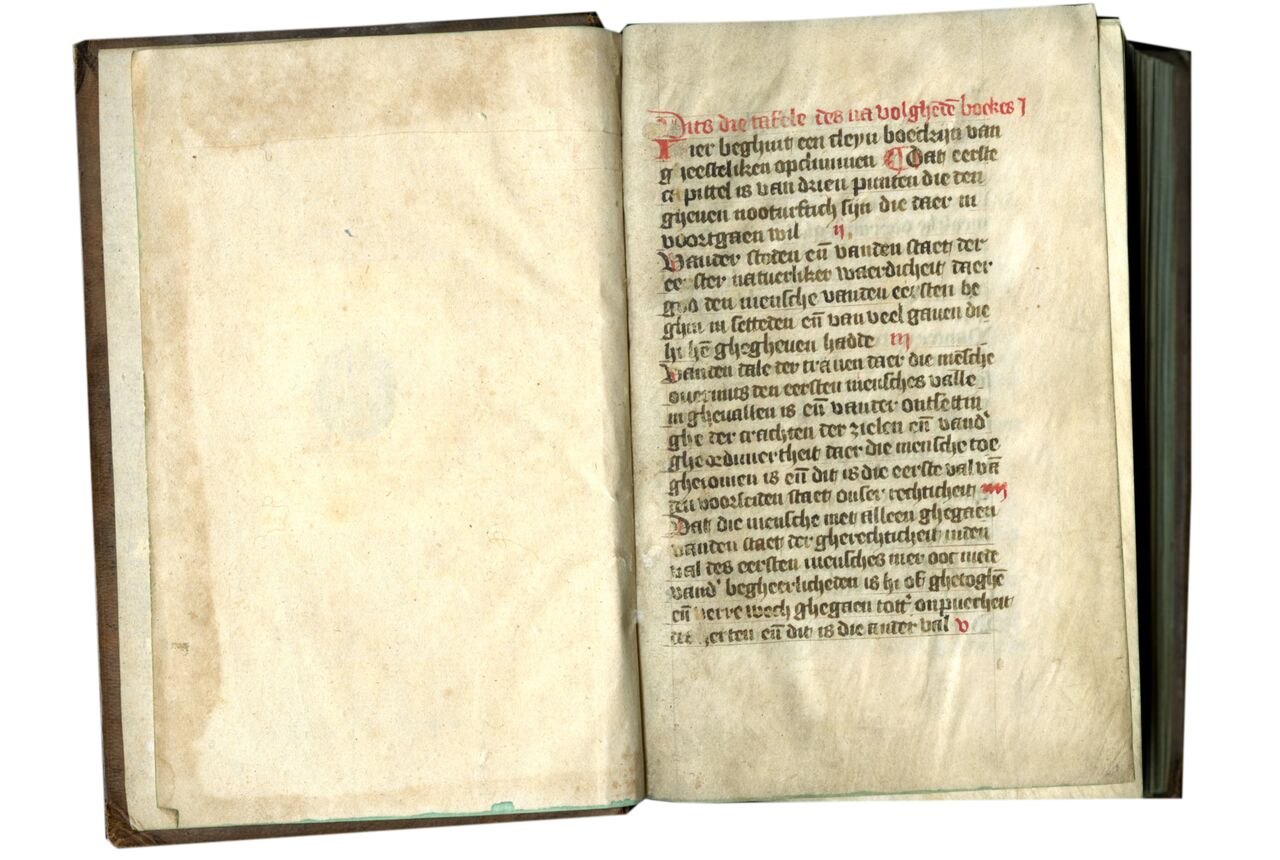 Dits die tafele des na volghēdē boekes j
Hier beghint een cleyn boeckijn van
gheesteliken opclimmen Dat eerste
capittel is van drien punten die den
ghenen nooturftich sijn die daer in
voortgaen wil ij
Vander steden eñ vanden staet der
eerster natuerliker waerdicheit daer
god den mensche vanden eersten be
ghin in settedē eñ van veel gauen die
hi hē ghegheuen hadde iij
Vanden dale der tranen daer die mēsche
ouermits den eersten menschen valle
in gheuallen is eñ vander ontsettin
ghe der crachten der zielen eñ vand'
gheordineertheit daer die mensche toe
ghecomen is eñ dit is die eerste val vā
den voorseiden staet onser rechticheit iiij
Dat die mensche niet alleen ghegaen
vanden staet der gherechticheit inden
val des eersten menschen mer ooc mede
vand' begheerlicheden is hi of ghetoghē
eñ verre wech ghegaen tott' onpuerheit
der herten eñ dit is die ander val v